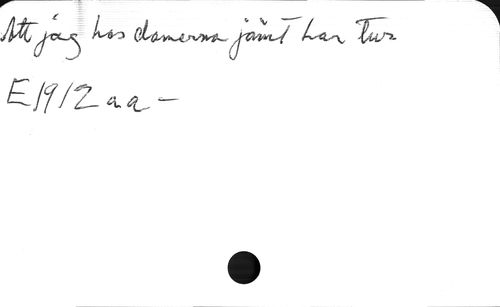 Att jag hos damerna jämt har tur
E1912 a a -